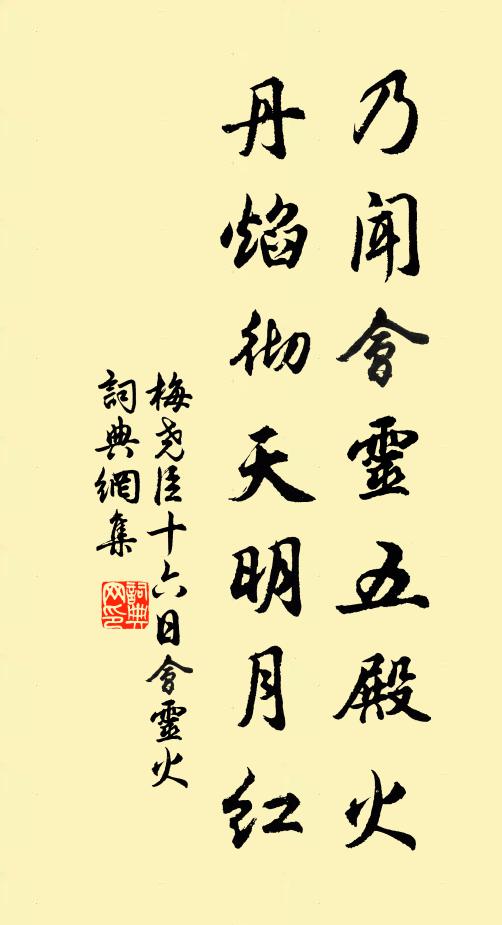 乃聞會靈五殿火
丹焰彻天明月红
梅尧臣十六日會靈火
詞典網集
詞典
网印